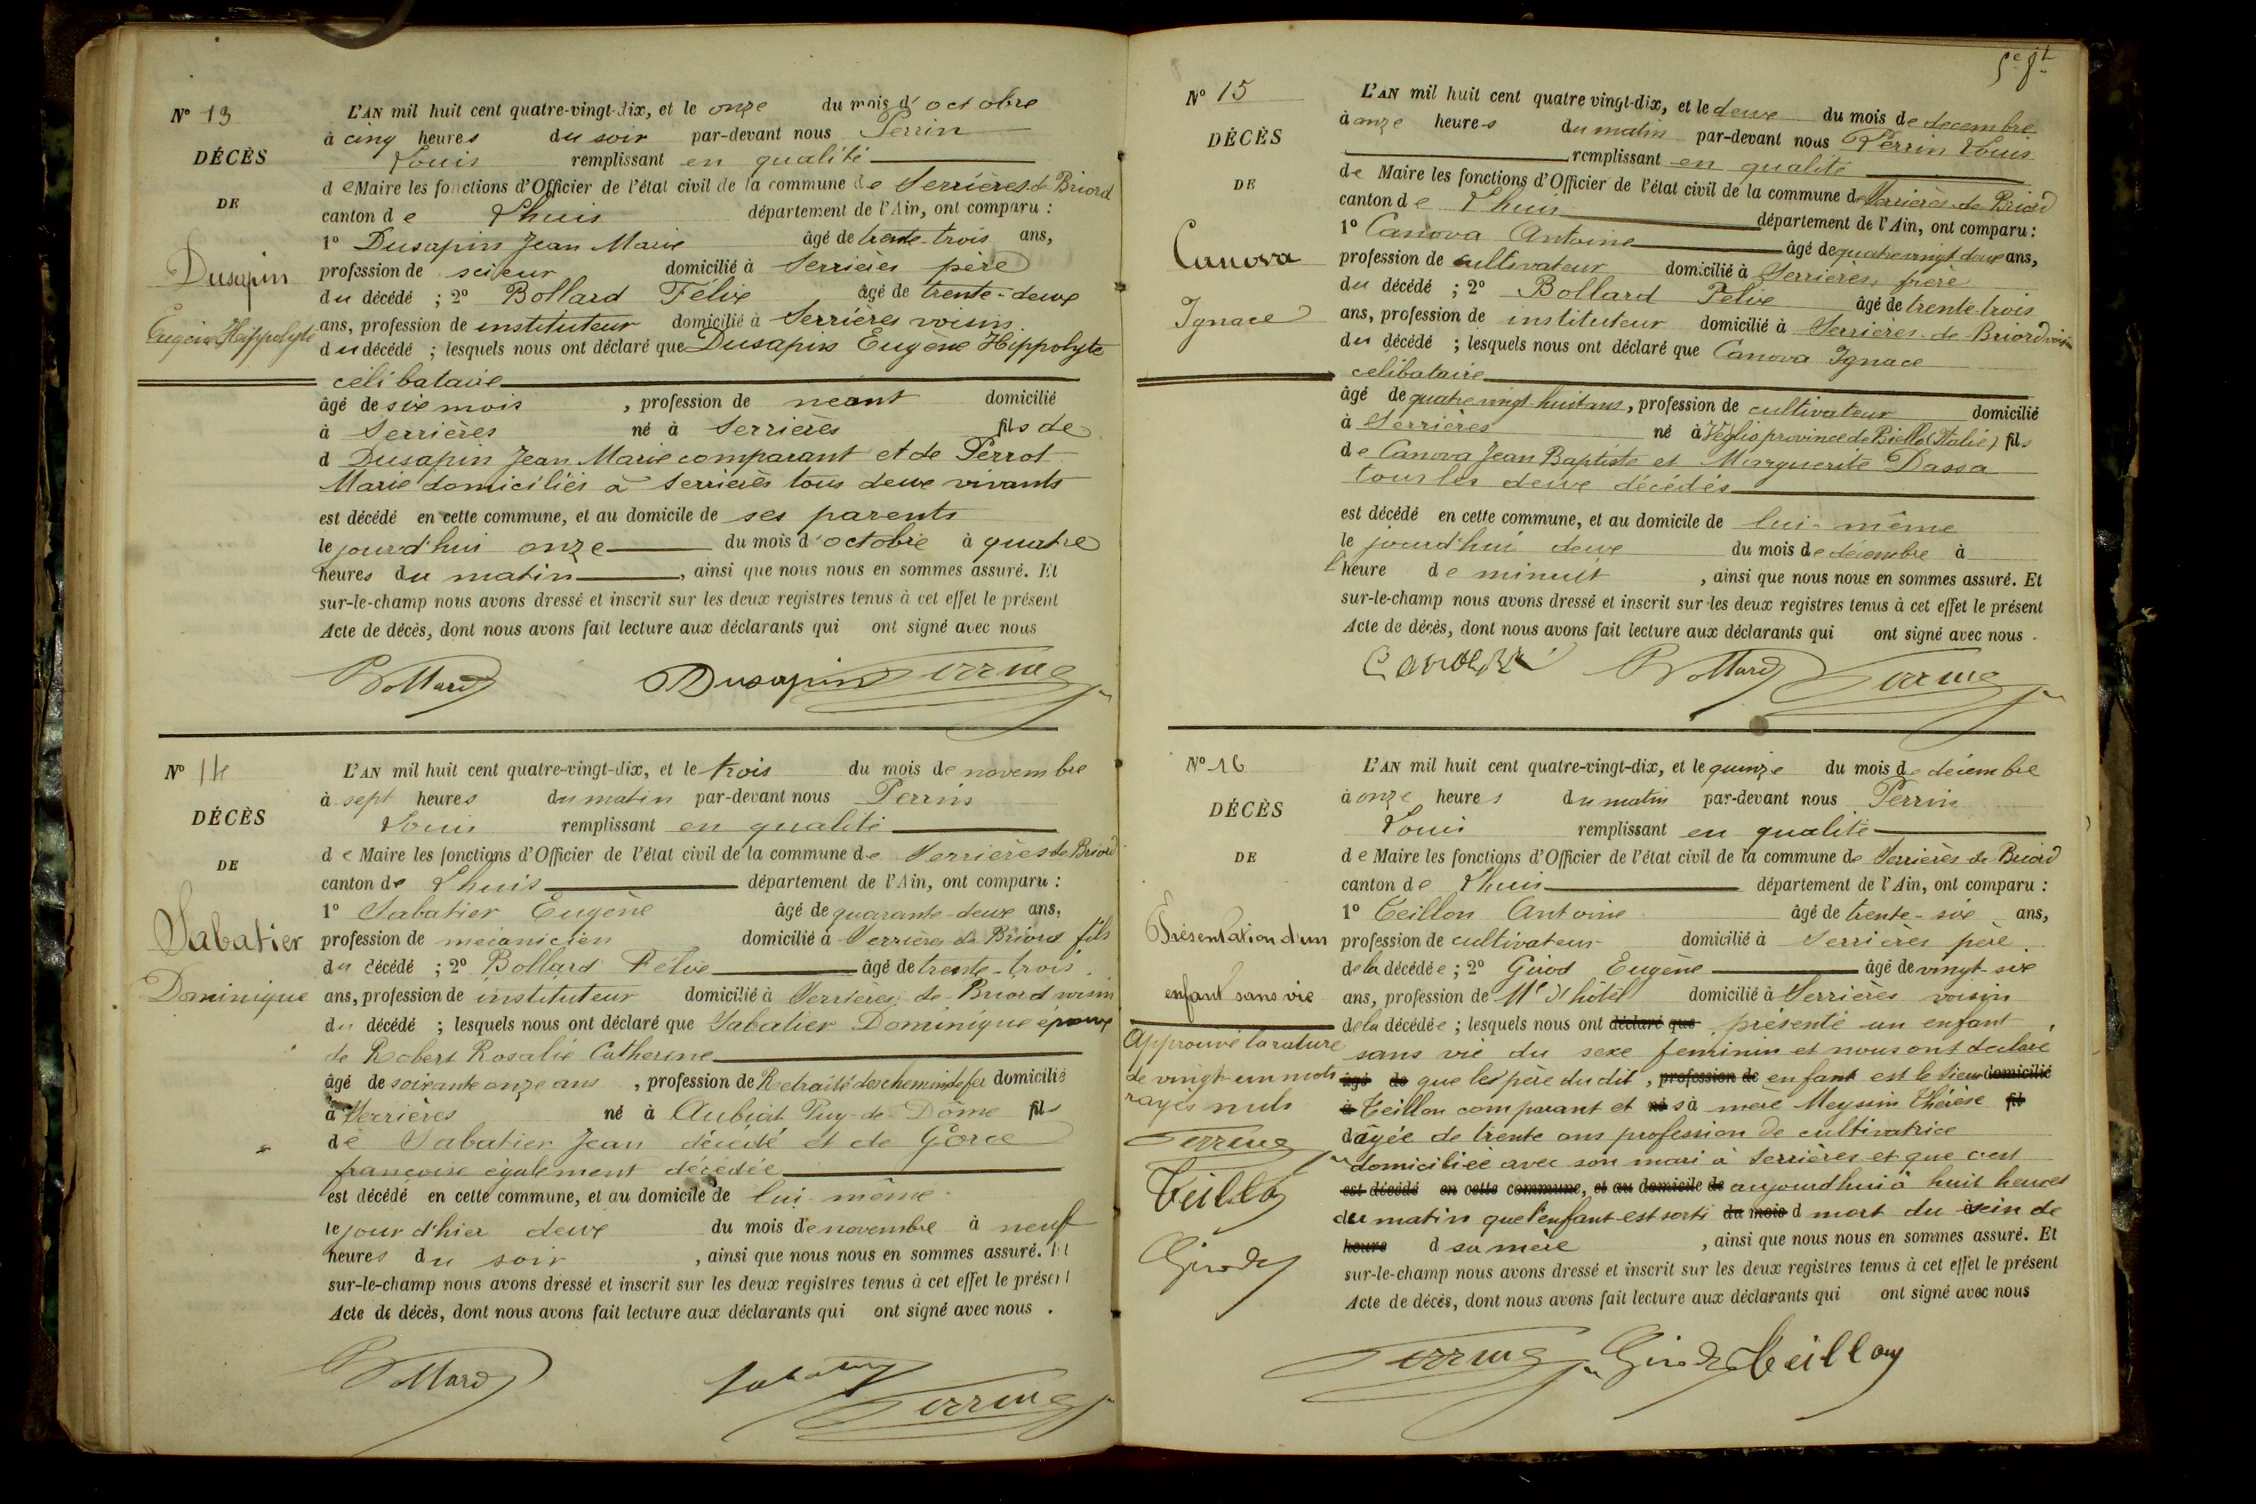 N° 13
DÉCÈS
DE
Dusapin
Eugène Hippolyte
L'AN mil huit cent quatre-vingt-dix, et le onze du mois d'octobre
à cinq heures du soir par-devant nous Perrin
Louis remplissant en qualité
de Maire les fonctions d'Officier de l'état civil de la commune de Serrières de Briord
canton de Lhuis département de l'Ain, ont comparu :
1° Dusapin Jean Marie âgé de trente-trois ans,
profession de scieur domicilié à Serrières père
du décédé ; 2° Bollard Félix âgé de trente-deux
ans, profession de instituteur domicilié à Serrières voisin
du décédé ; lesquels nous ont déclaré que Dusapin Eugène Hippolyte
célibataire
âgé de six mois , profession de néant domicilié
à Serrières né à Serrières fils de
d Dusapin Jean Marie comparant et de Perrot
Marie domiciliés à Serrières tous deux vivants
est décédé en cette commune, et au domicile de ses parents
le jourd'hui onze du mois d'octobre à quatre
heures du matin , ainsi que nous nous en sommes assuré. Et
sur-le-champ nous avons dressé et inscrit sur les deux registres tenus à cet effet le présent
Acte de décès, dont nous avons fait lecture aux déclarants qui ont signé avec nous
Bollard Dusapin Perrin
N° 14
DÉCÈS
DE
Sabatier
Dominique
L'AN mil huit cent quatre-vingt-dix, et le trois du mois de novembre
à sept heures du matin par-devant nous Perrin
Louis remplissant en qualité
de Maire les fonctions d'Officier de l'état civil de la commune de Serrières de Briord
canton de Lhuis département de l'Ain, ont comparu :
1° Sabatier Eugène âgé de quarante-deux ans,
profession de mécanicien domicilié à Serrières de Briord fils
du décédé ; 2° Bollard Félix âgé de trente-trois
ans, profession de instituteur domicilié à Serrières de Briord voisin
du décédé ; lesquels nous ont déclaré que Sabatier Dominique époux
de Robert Rosalie Catherine
âgé de soixante onze ans , profession de Retraité des chemins de fer domicilié
à Serrières né à Aubiat Puy-de-Dôme fils
de Sabatier Jean décédé et de Gorce
françoise également décédée
est décédé en cette commune, et au domicile de lui-même
le jour d'hier deux du mois de novembre à neuf
heures du soir , ainsi que nous nous en sommes assuré. Et
sur-le-champ nous avons dressé et inscrit sur les deux registres tenus à cet effet le présent
Acte de décès, dont nous avons fait lecture aux déclarants qui ont signé avec nous .
Bollard Perrin
N° 15
DÉCÈS
DE
Canova
Ignace
L'AN mil huit cent quatre vingt-dix, et le deux du mois de decembre
à onze heures du matin par-devant nous Perrin Louis
remplissant en qualité
de Maire les fonctions d'Officier de l'état civil de la commune de Serrières de Briord
canton de Lhuis département de l'Ain, ont comparu :
1° Canova Antoine âgé de quatre vingt deux ans,
profession de cultivateur domicilié à Serrières, frère
du décédé ; 2° Bollard Félix âgé de trente-trois
ans, profession de instituteur domicilié à Serrières de Briord voisin
du décédé ; lesquels nous ont déclaré que Canova Ignace
célibataire
âgé de quatre vingt huit ans, profession de cultivateur domicilié
à Serrières né à Veglio province de Biella (Italie) fils
de Canova Jean Baptiste et Marguerite Dassa
tous les deux décédés
est décédé en cette commune, et au domicile de lui-même
le jourd'hui deux du mois de décembre à
l'heure de minuit , ainsi que nous nous en sommes assuré. Et
sur-le-champ nous avons dressé et inscrit sur les deux registres tenus à cet effet le présent
Acte de décès, dont nous avons fait lecture aux déclarants qui ont signé avec nous .
Bollard Perrin
N° 16
DÉCÈS
DE
Présentation d'un
enfant sans vie
Approuvé la rature
de vingt-un mots
rayés nuls
Perrin
Teillon
Girod
L'AN mil huit cent quatre-vingt-dix, et le quinze du mois de décembre
à onze heures du matin par-devant nous Perrin
Louis remplissant en qualité
de Maire les fonctions d'Officier de l'état civil de la commune de Serrières de Briord
canton de Lhuis département de l'Ain, ont comparu :
1° Teillon Antoine âgé de trente-six ans,
profession de cultivateur domicilié à Serrières père
de la décédée ; 2° Girod Eugène âgé de vingt-six
ans, profession de Me d'hôtel domicilié à Serrières voisin
de la décédée ; lesquels nous ont déclaré que présenté un enfant
sans vie du sexe feminin et nous ont declaré
âgé de que le père du dit , profession de enfant est le sieur domicilié
à Teillon comparant et né sa mère Meysin Thérèse fil
d âgée de trente ans profession de cultivatrice
domiciliée avec son mari à Serrières et que c'est
est décédé en cette commune, et au domicile de aujourd'hui à huit heures
du matin que l'enfant est sorti du mois d mort du sein de
heure d sa mère , ainsi que nous nous en sommes assuré. Et
sur-le-champ nous avons dressé et inscrit sur les deux registres tenus à cet effet le présent
Acte de décès, dont nous avons fait lecture aux déclarants qui ont signé avec nous
Perrin Girod Teillon